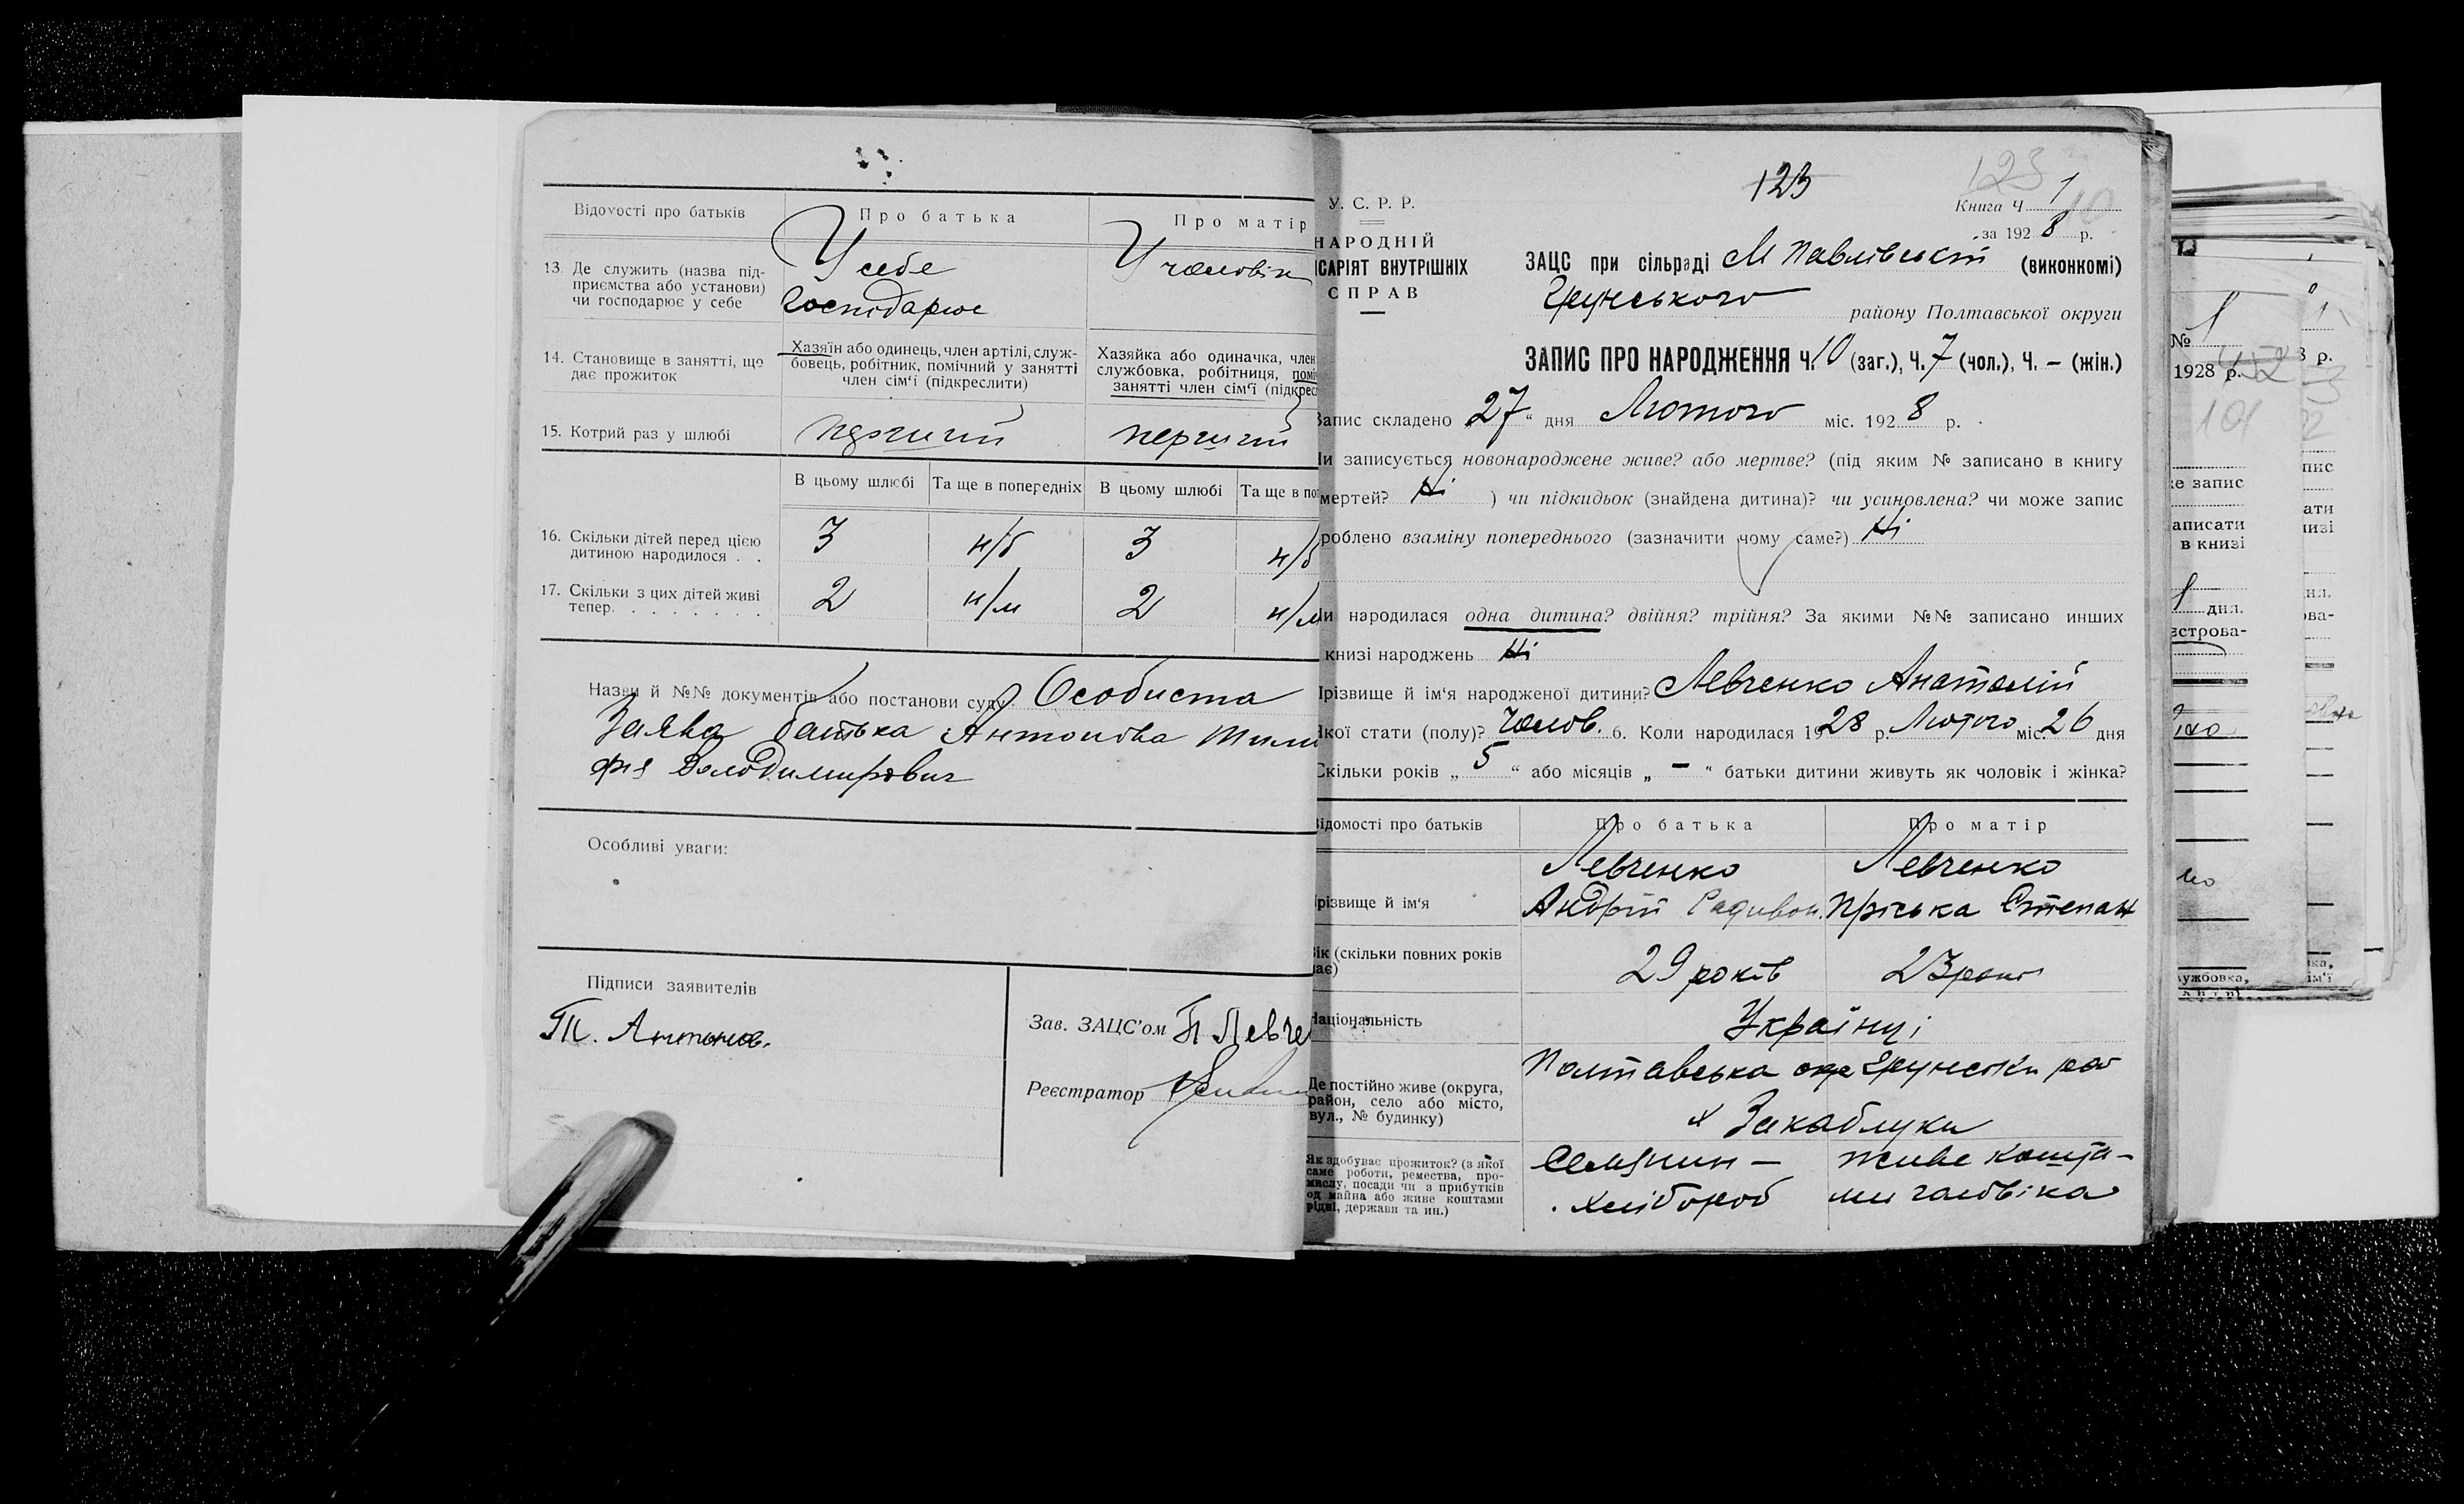 Відомості про батьків
Про батька
Про матір
13. Де служить (назва під-
приємства або установи)
чи господарює у себе
У себе
господарює
У чоловік
14. Становище в занятті, що
дає прожиток
Хазяїн або одинець, член артілі, служ-
бовець, робітник, помічний у занятті
член сім‘ї (підкреслити)
Хазяйка або одиначка, член
службовка, робітниця, помі
занятті член сім‘ї (підкрес
15. Котрий раз у шлюбі
перший
В цьому шлюбі
Та ще в попередніх
В цьому шлюбі
Та ще в по
16. Скільки дітей перед цією
дитиною народилося . .
3
н/б
3
н/б
17. Скільки з цих дітей живі
тепер. . . . . . . .
2
н/м
2
н/м
Назви й №№ документів або постанови суду Особиста
Заява батька Антонова Тими
фія Володимирович
Особливі уваги:
Підписи заявителів
Т. Антонов.
Зав. ЗАЦС’ом П Левче
Реєстратор
123
123
У. С. Р. Р.
НАРОДНІЙ
ІСАРІЯТ ВНУТРІШНІХ
СПРАВ
Книга Ч. 1
за 1928 р.
10
ЗАЦС при сільраді М Павлівській (виконкомі)
Грунського
району Полтавської округи
ЗАПИС ПРО НАРОДЖЕННЯ Ч. 10 (заг.), Ч. 7 (чол.), Ч. — (жін.)
Запис складено 27 “ дня Лютого міс. 1928 р.
Чи записується новонароджене живе? або мертве? (під яким № записано в книгу
мертей? Ні ) чи підкидьок (знайдена дитина)? чи усиновлена? чи може запис
роблено взаміну попереднього (зазначити чому саме?) Ні
Чи народилася одна дитина? двійня? трійня? За якими №№ записано инших
книзі народжень Ні
Прізвище й ім‘я народженої дитини? Левченко Анатолій
Якої стати (полу)? Чолов. 6. Коли народилася 1928 р. Лютого міс. 26 дня
Скільки років „ 5 “ або місяців „ — “ батьки дитини живуть як чоловік і жінка?
Відомості про батьків
Про батька
Про матір
Прізвище й ім‘я
Левченко
Андрій Радивон.
Левченко
Пріська Степан
Вік (скільки повних років
має)
29 років
23 роки
Національність
Українці
Де постійно живе (округа,
район, село або місто,
вул., № будинку)
Полтавська окр Грунськи рай
х Закаблуки
Як здобуває прожиток? (з якої
саме роботи, ремества, про-
мислу, посади чи з прибутків
од майна або живе коштами
рідні, держави та ин.)
Селянин —
хлібороб
живе кошта-
ми чоловіка
№ 1
1928 р.
101